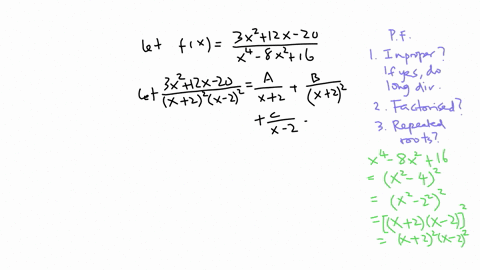 let f(x) = 3x²+12x-20 / x⁴-8x²+16
let 3x²+12x-20 / (x+2)²(x-2)² = A / x+2 + B / (x+2)²
+ C / x-2 .
P.F.
1. Improper?
If yes, do
long div.
2. Factorised?
3. Repeated
roots?
x⁴-8x²+16
= (x²-4)²
= (x²-2²)²
= [(x+2)(x-2)]²
= (x+2)²(x-2)²